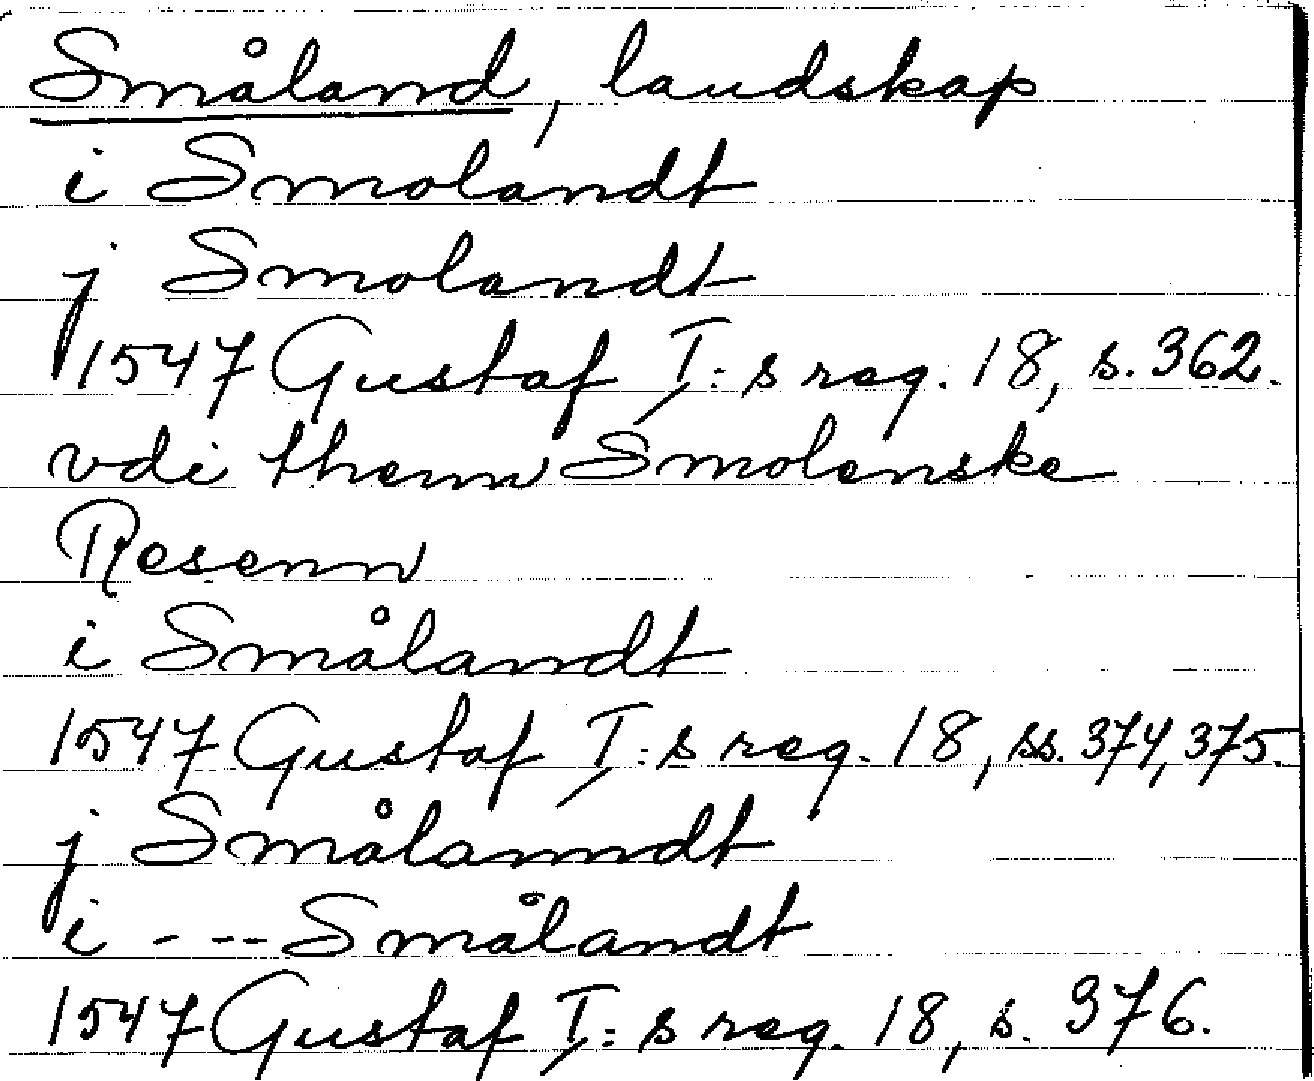 Småland, landskap
i Smolandt
j Smolandt
1547 Gustaf I:s reg. 18, s. 362.
vdi thenn Smolenske
Resenn
i Smålandt
1547 Gustaf I:s reg. 18, ss. 374, 375.
j Smålanndt
i --- Smålandt
1547 Gustaf I:s reg. 18, s. 376.